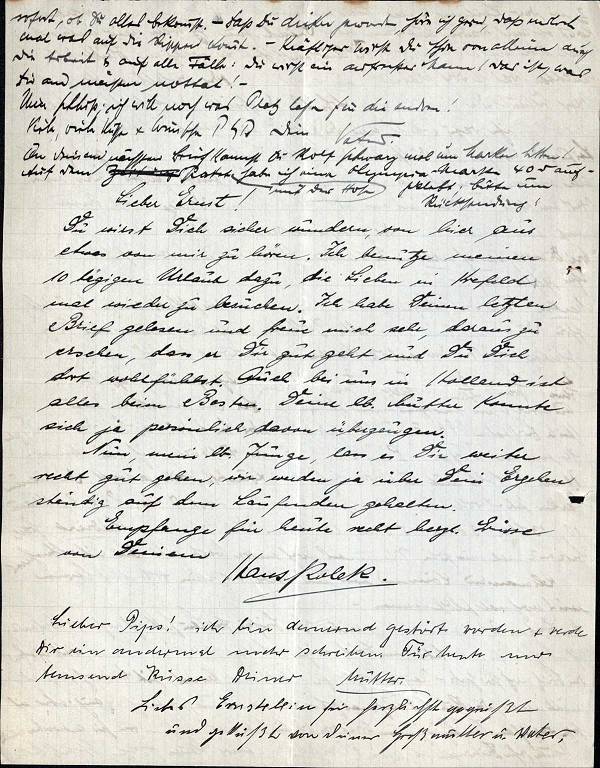 sofort, ob Du alles bekommst. – Daß Du dicker geworden höre ich gern, daß endlich
mal was auf die Rippen kommt. – Kräftiger wirst Du schon von allein durch
die Arbeit & auf alle Fälle: Du wirst ein
Dir am meisten nottat! –
Nun Schluß: ich will noch was Platz lassen für die andern!
Viele, viele Küsse & Dein Vater.
An deinem nächsten Brief kannst Du mal um
Auf dem habe ich eine Olympia-Marke 40 auf-
mit der geklebt; bitte um
Rücksendung!
Lieber Ernst!
Du wirst Dich sicher wundern, von hier aus
etwas von mir zu hören. Ich benutze meinen
10 tägigen Urlaub dazu, die Lieben in Krefeld
mal wieder zu besuchen. Ich habe Deinen letzten
Brief gelesen und freue mich sehr, daraus zu
ersehen, dass es Dir gut geht und Du Dich
dort wohlfühlst. Auch bei uns in Holland ist
alles beim Besten. Deine lb. Mutter konnte
sich ja persönlich davon überzeugen.
Nun, mein lb. Junge, lass es Dir weiter
recht gut gehen, wir werden ja über Dein Ergehen
ständig auf dem Laufenden gehalten.
Empfange für heute recht herzl. Grüsse
von Deinem
Hans Kolek.
Lieber Pips! ich bin dauernd gestört worden & werde
Dir ein andermal mehr schreiben. Für heute nur
tausend Küsse Deiner Mutter.
Liebes Ernstellein sei herzlichst gegrüßt
und geküßt von Deiner Großmutter u. Vater,